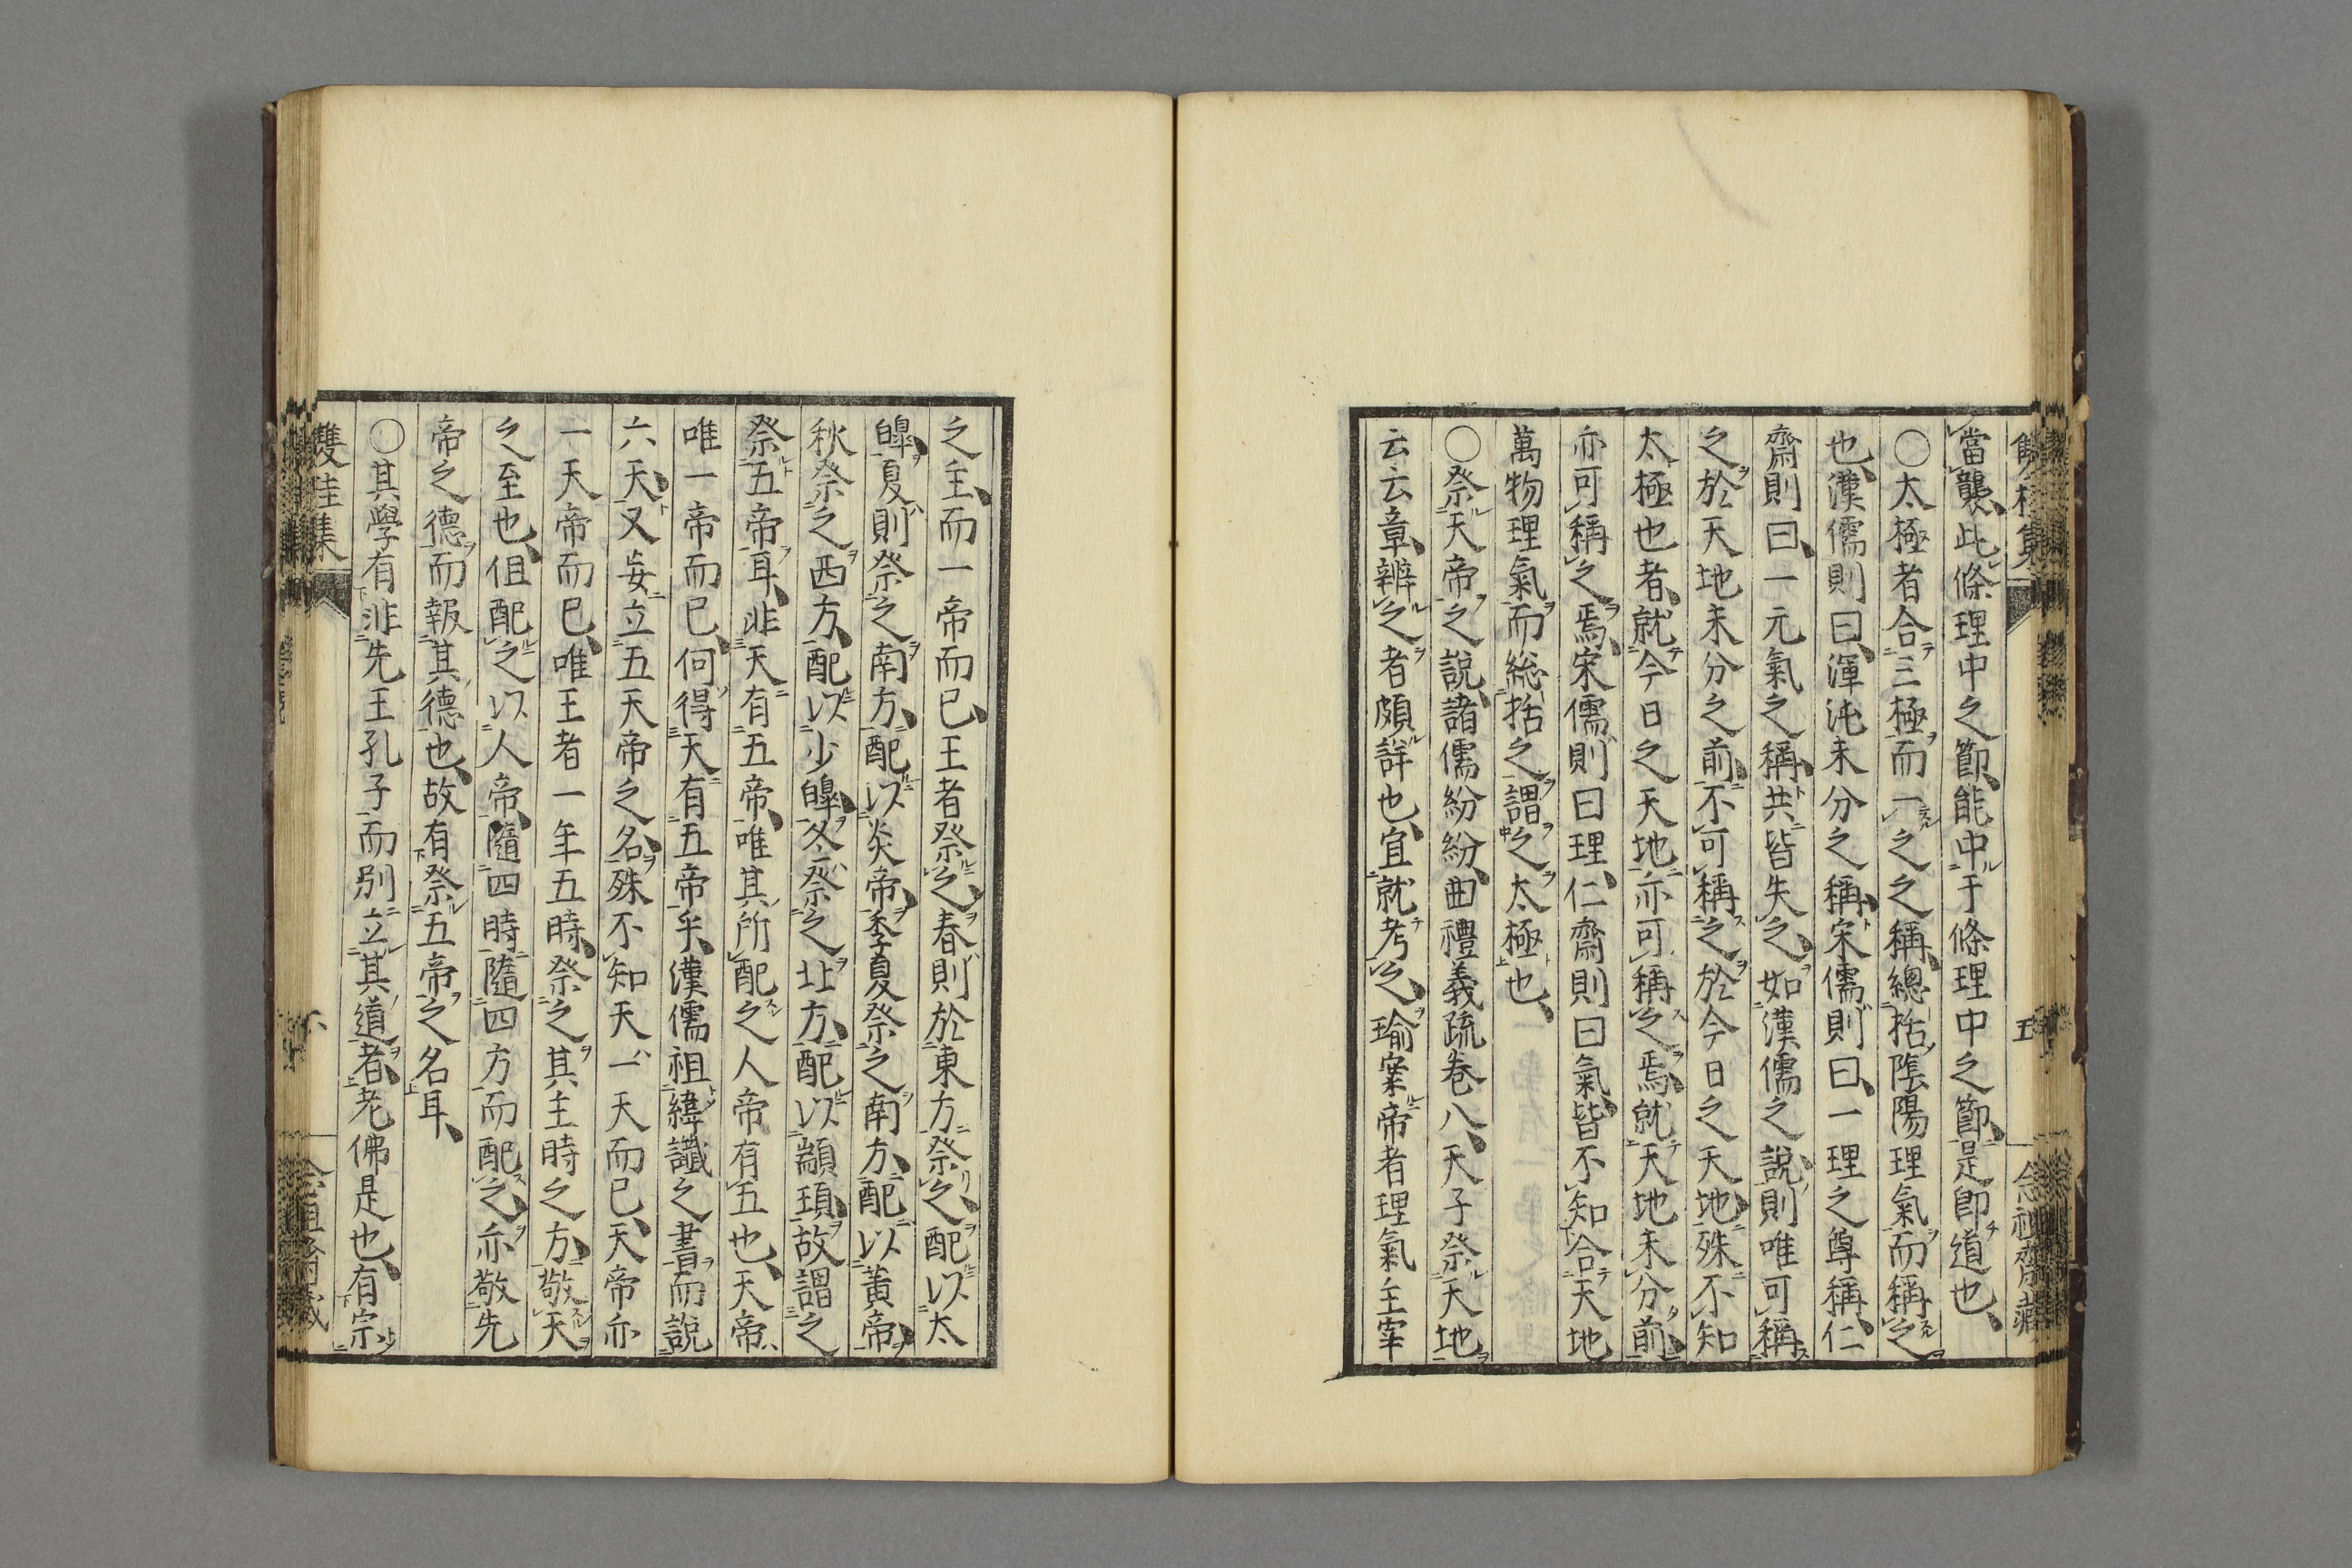 當襲此條理中之節、能中于條理中之節、是卽道也、
〇太極者合三極而一之之稱、總括陰陽理氣而稱之
也、漢儒則曰、渾沌未分之稱、宋儒則曰、一理之尊稱、仁
齋則曰、一元氣之稱、共皆失之、如漢儒之說、則唯可稱
之於天地未分之前、不可稱之於今日之天地、殊不知
太極也者、就今日之天地、亦可稱之焉、就天地未分前、
亦可稱之焉、宋儒則曰理、仁齋則曰氣、皆不知合天地
萬物理氣而総括之、謂之太極也、
〇祭天帝之說、諸儒紛紛、曲禮義疏卷八、天子祭天地
云云章、辨之者頗詳也、宜就考之、瑜案帝者理氣主宰
之主、而一帝而已、王者祭之、春則於東方祭之、配以太
皥、夏則祭之南方、配以炎帝、季夏祭之南方、配以黃帝、
秋祭之西方、配以少皥、冬祭之北方、配以顓頊、故謂之
祭五帝耳、非天有五帝、唯其所配之人帝有五也、天帝
唯一帝而已、何得天有五帝乎、漢儒祖緯讖之書而說
六天、又妄立五天帝之名、殊不知天一天而已、天帝亦
一天帝而已、唯王者一年五時、祭之其主時之方、敬天
之至也、但配之以人帝、隨四時隨四方而配之、亦敬先
帝之德而報其德也、故有祭五帝之名耳、
〇其學有非先王孔子而別立其道者、老佛是也、有宗
雙桂集